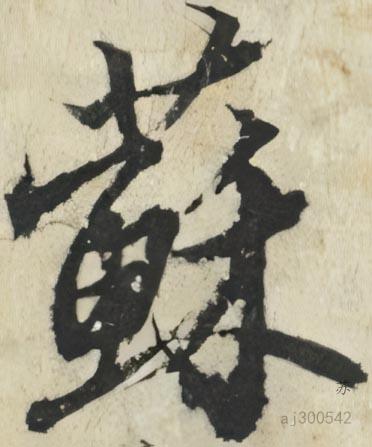 蘇
苏
aj300542